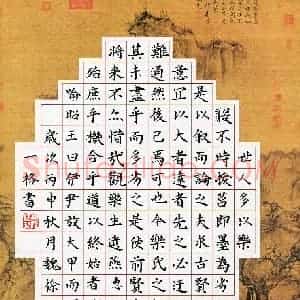 世人多以樂
毅不時拔莒即墨為劣
是以叙而論之夫求古賢
意宜以大者遠者先之必迂
難通然後已焉可也今樂氏之
其未盡乎而多劣之是使前賢
將來不亦惜哉觀樂生遺燕
殆庶乎機合乎道以終始者
喻昭王曰伊尹放大甲而
歲次丙申秋月魏徐
書